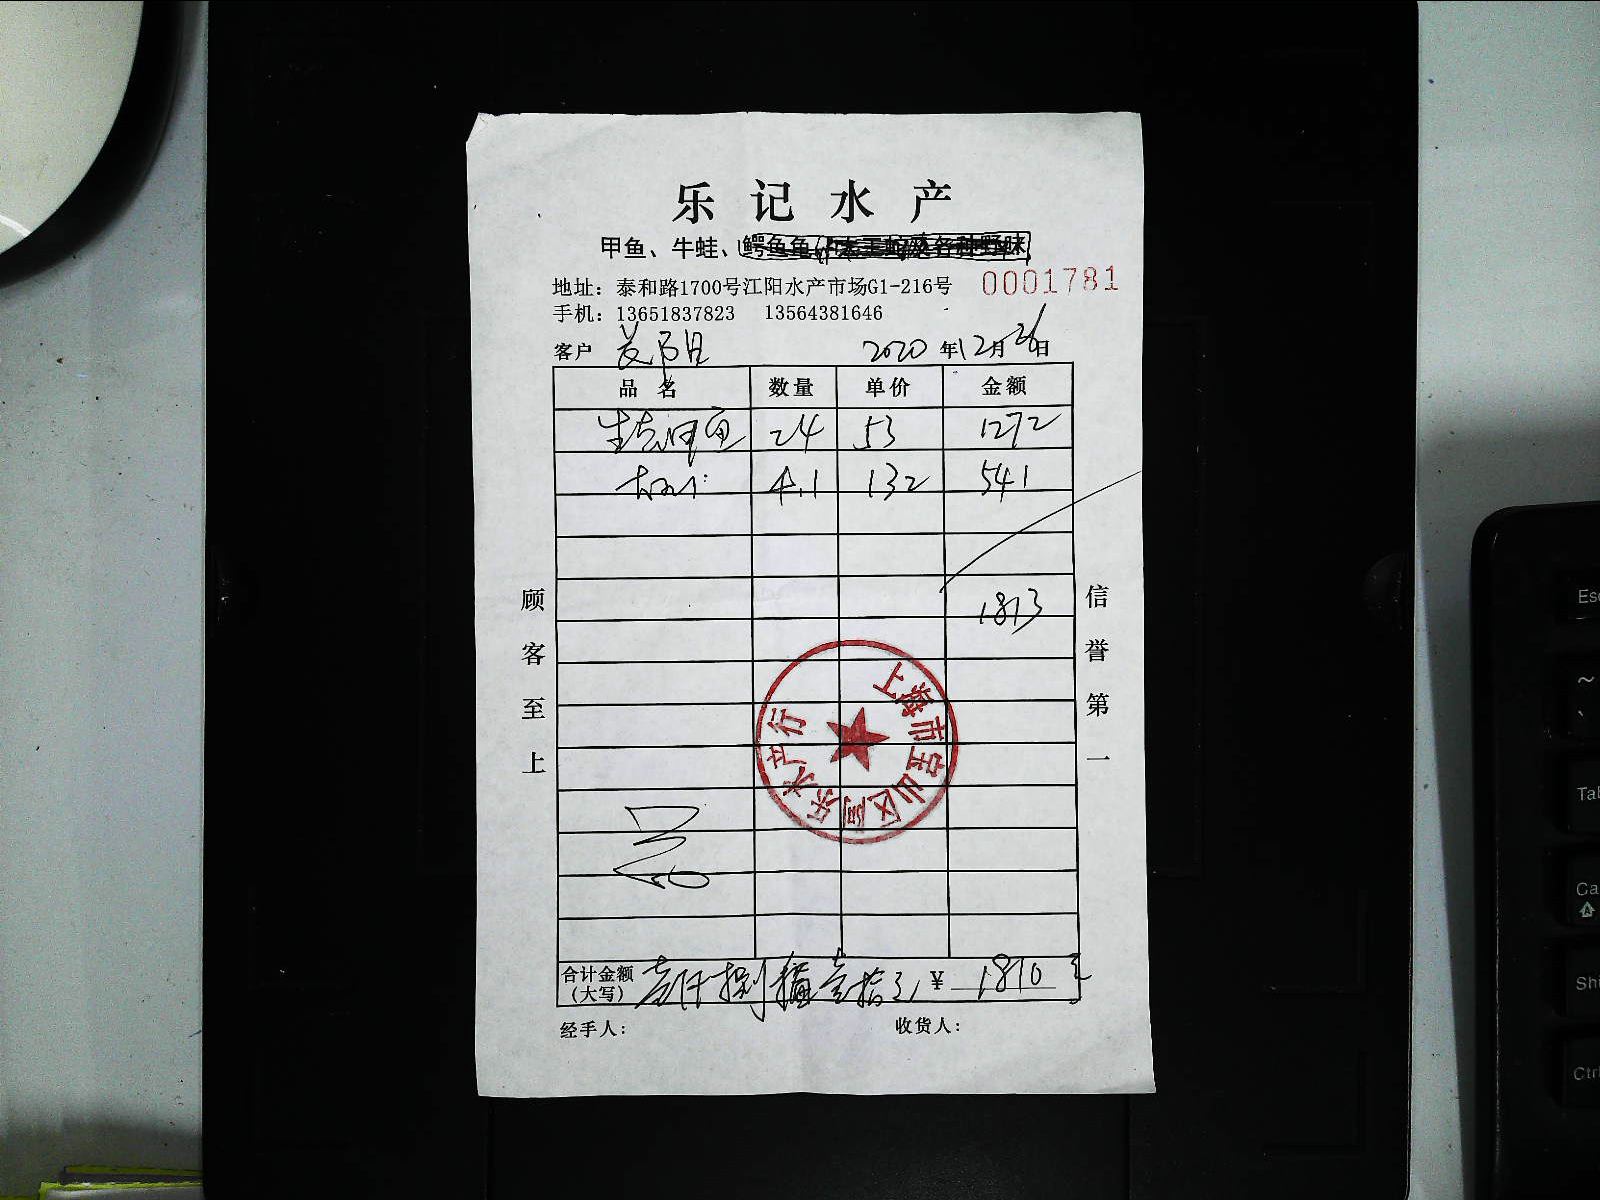 乐记水产
甲鱼、牛蛙、鳄鱼龟
地址：泰和路1700号江阳水产市场G1-216号 0001781
手机：13651837823 13564381646
客户 2020年12月26日
品名 数量 单价 金额
生态甲鱼 24 53 1272
4.1 132 541
1813
顾客至上
信誉第一
上海市宝山区阿乐水产行
合计金额（大写） 壹仟捌佰壹拾元 ¥ 1810元
经手人： 收货人：
Esc
~
`
Tab
Ca
Shi
Ctrl